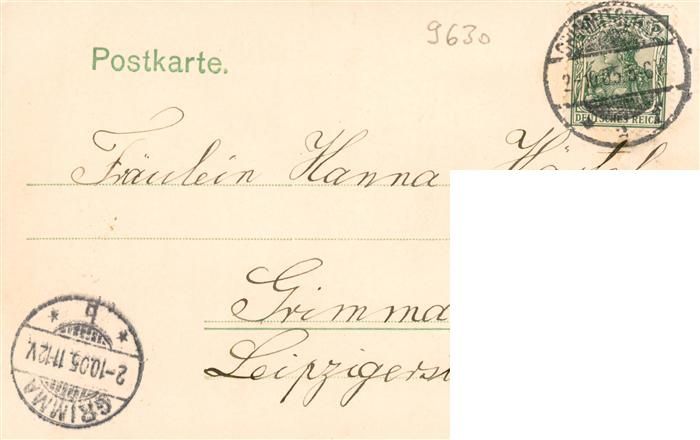 9630
Postkarte.
DEUTSCHES REICH
2-10.05.
Fräulein Hanna
Grimma
Leipzigerst
GRIMMA
2-10.05. 11-12V.
b